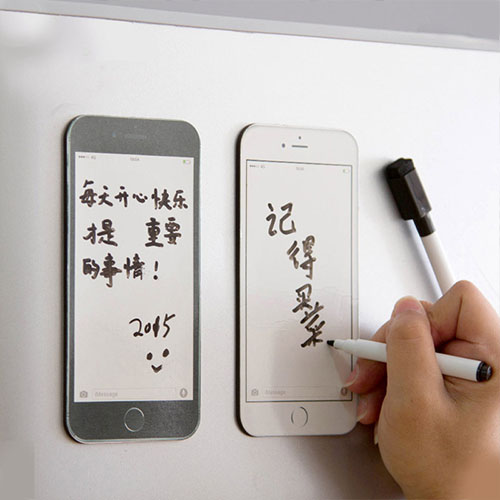 每天开心快乐
才是 重要
的事情！
2015
Message
记得买菜
Message